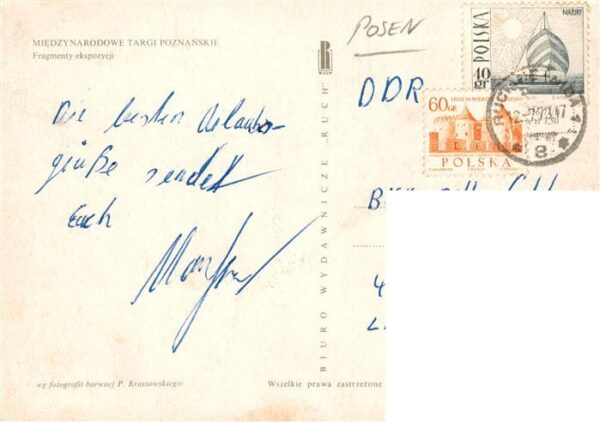 MIĘDZYNARODOWE TARGI POZNAŃSKIE
Fragmenty ekspozycji
Die besten Urlaubs-
grüße sendet
Euch
Manfred
wg fotografii barwnej P. Krassowskiego
RUCH
BIURO WYDAWNICZE „RUCH”
Wszelkie prawa zastrzeżone
POSEN
DDR
POLSKA
10 gr
60 GR
POLSKA
8
4